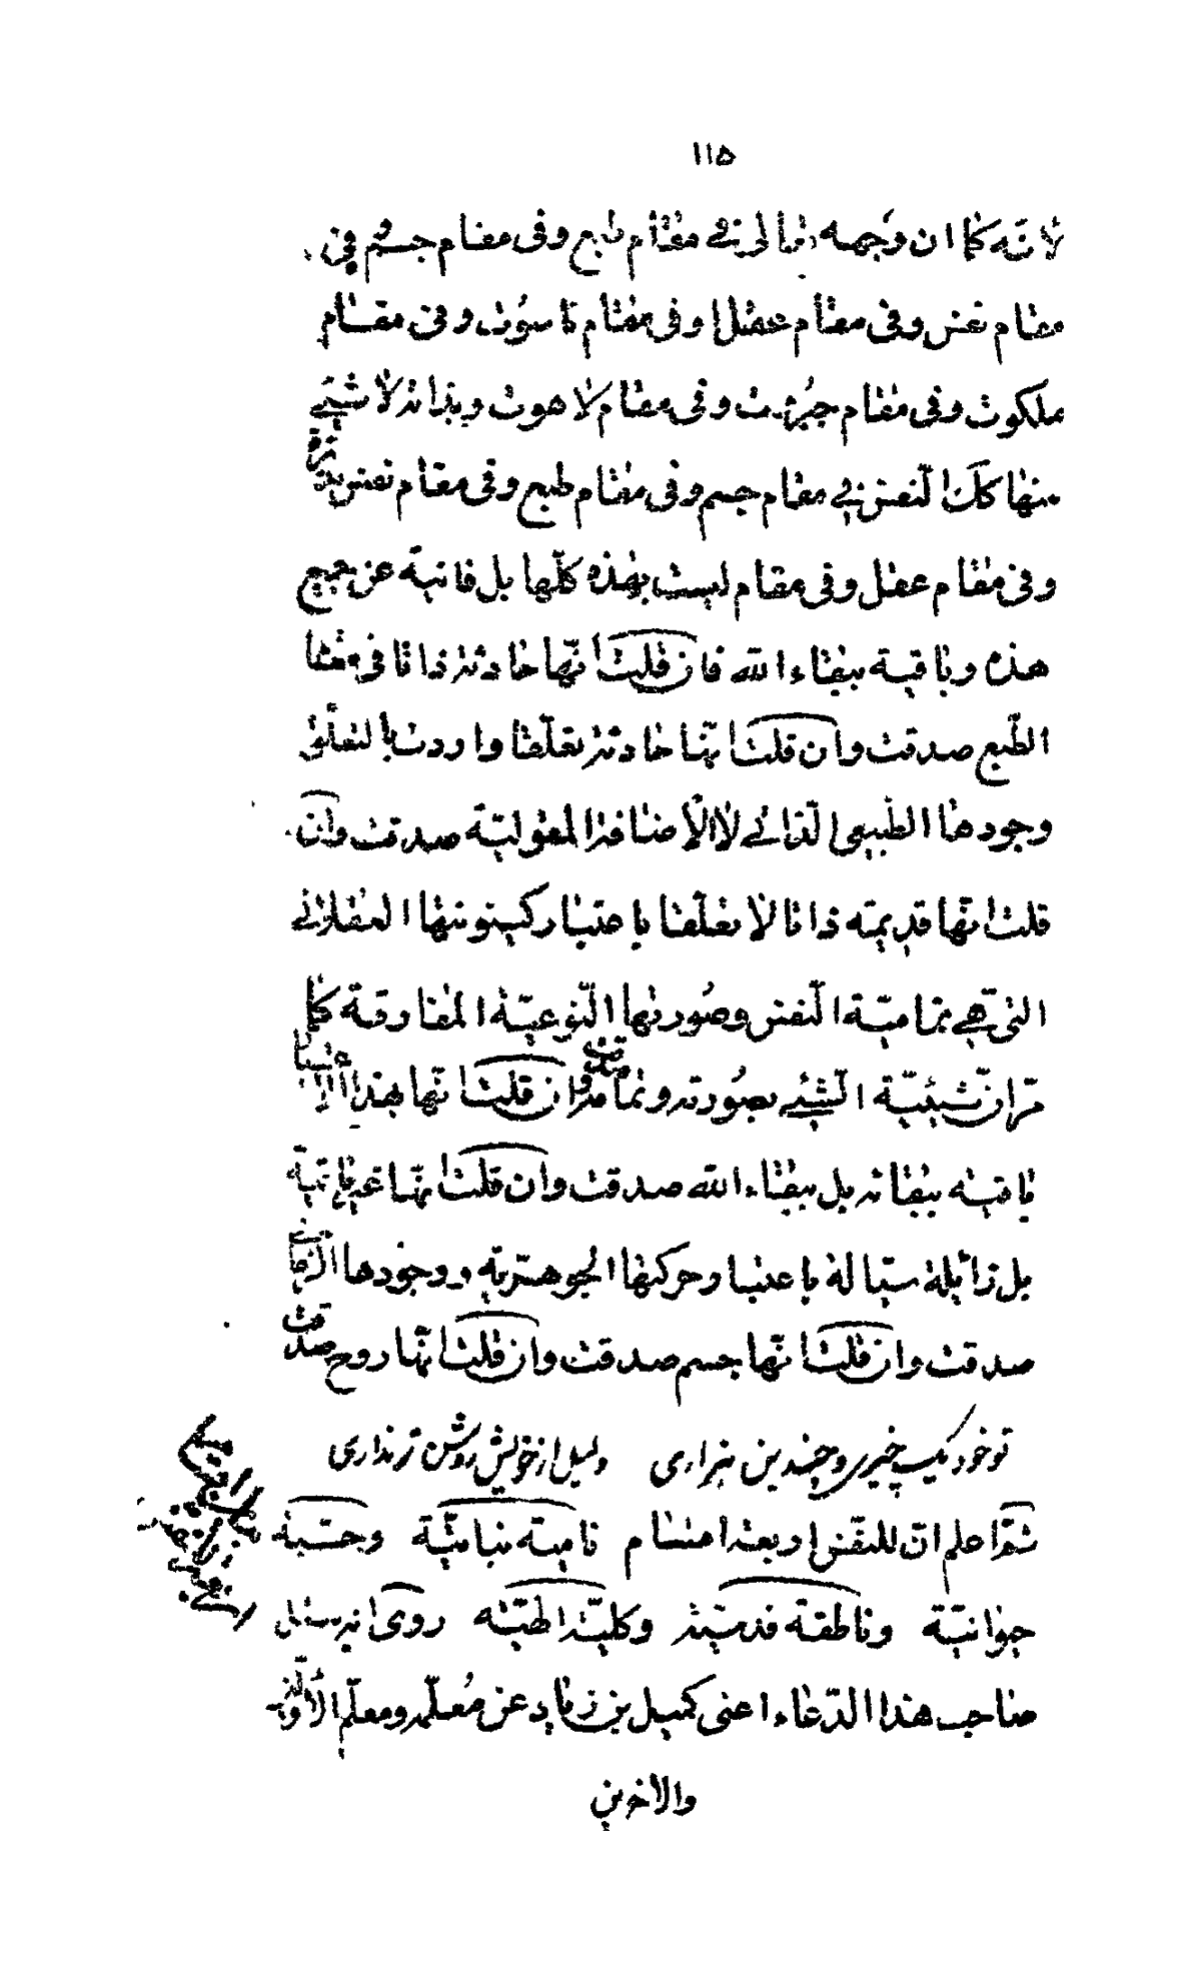 ١١٥
لانّه كما ان وجهه تعالى فى مقام طبع وفى مقام جسم وفى
مقام نفس وفى مقام عقل وفى مقام ناسوت وفى مقام
ملكوت وفى مقام جبروت وفى مقام لاهوت وبذاته لا شىء
منها كك النفس فى مقام جسم وفى مقام طبع وفى مقام نفس
وفى مقام عقل وفى مقام ليست بهذه كلّها بل فانية عن جميع
هذه وباقية ببقاء الله فان قلت انّها حادثة ذاتا فى مقام
الطّبع صدقت وان قلت انّها حادثة تعلّقا واردت بالتعلّق
وجودها الطّبيعى الذّاتى لا الاضافة المقوليّة صدقت وان
قلت انّها قديمة ذاتا لا تعلّقا باعتبار كينونتها العقلانى
التى هى تماميّة النّفس وصورتها النّوعيّة المفارقة كما
مرّ ان شيئيّة الشّىء بصورته وتمامه صدقت وان قلت انّها بهذا الاعتبار
باقية ببقائه بل ببقاء الله صدقت وان قلت انّها غير باقية
بل زائلة سيّالة باعتبار حركتها الجوهريّة ووجودها الزّمانى
صدقت وان قلت انّها جسم صدقت وان قلت انّها روح صدقت
تو خود يک چيزى و چندين هزارى دليل از خويش روشن‌تر ندارى
ثمّ اعلم انّ للنّفس اربعة اقسام نامية نباتيّة وحسّية
حيوانيّة وناطقة قدسيّة وكليّة الهيّة روى انه سئل
صاحب هذا الدّعاء اعنى كميل بن زياد عن مُعلّمه ومعلّم الاوّلين
والاخرين